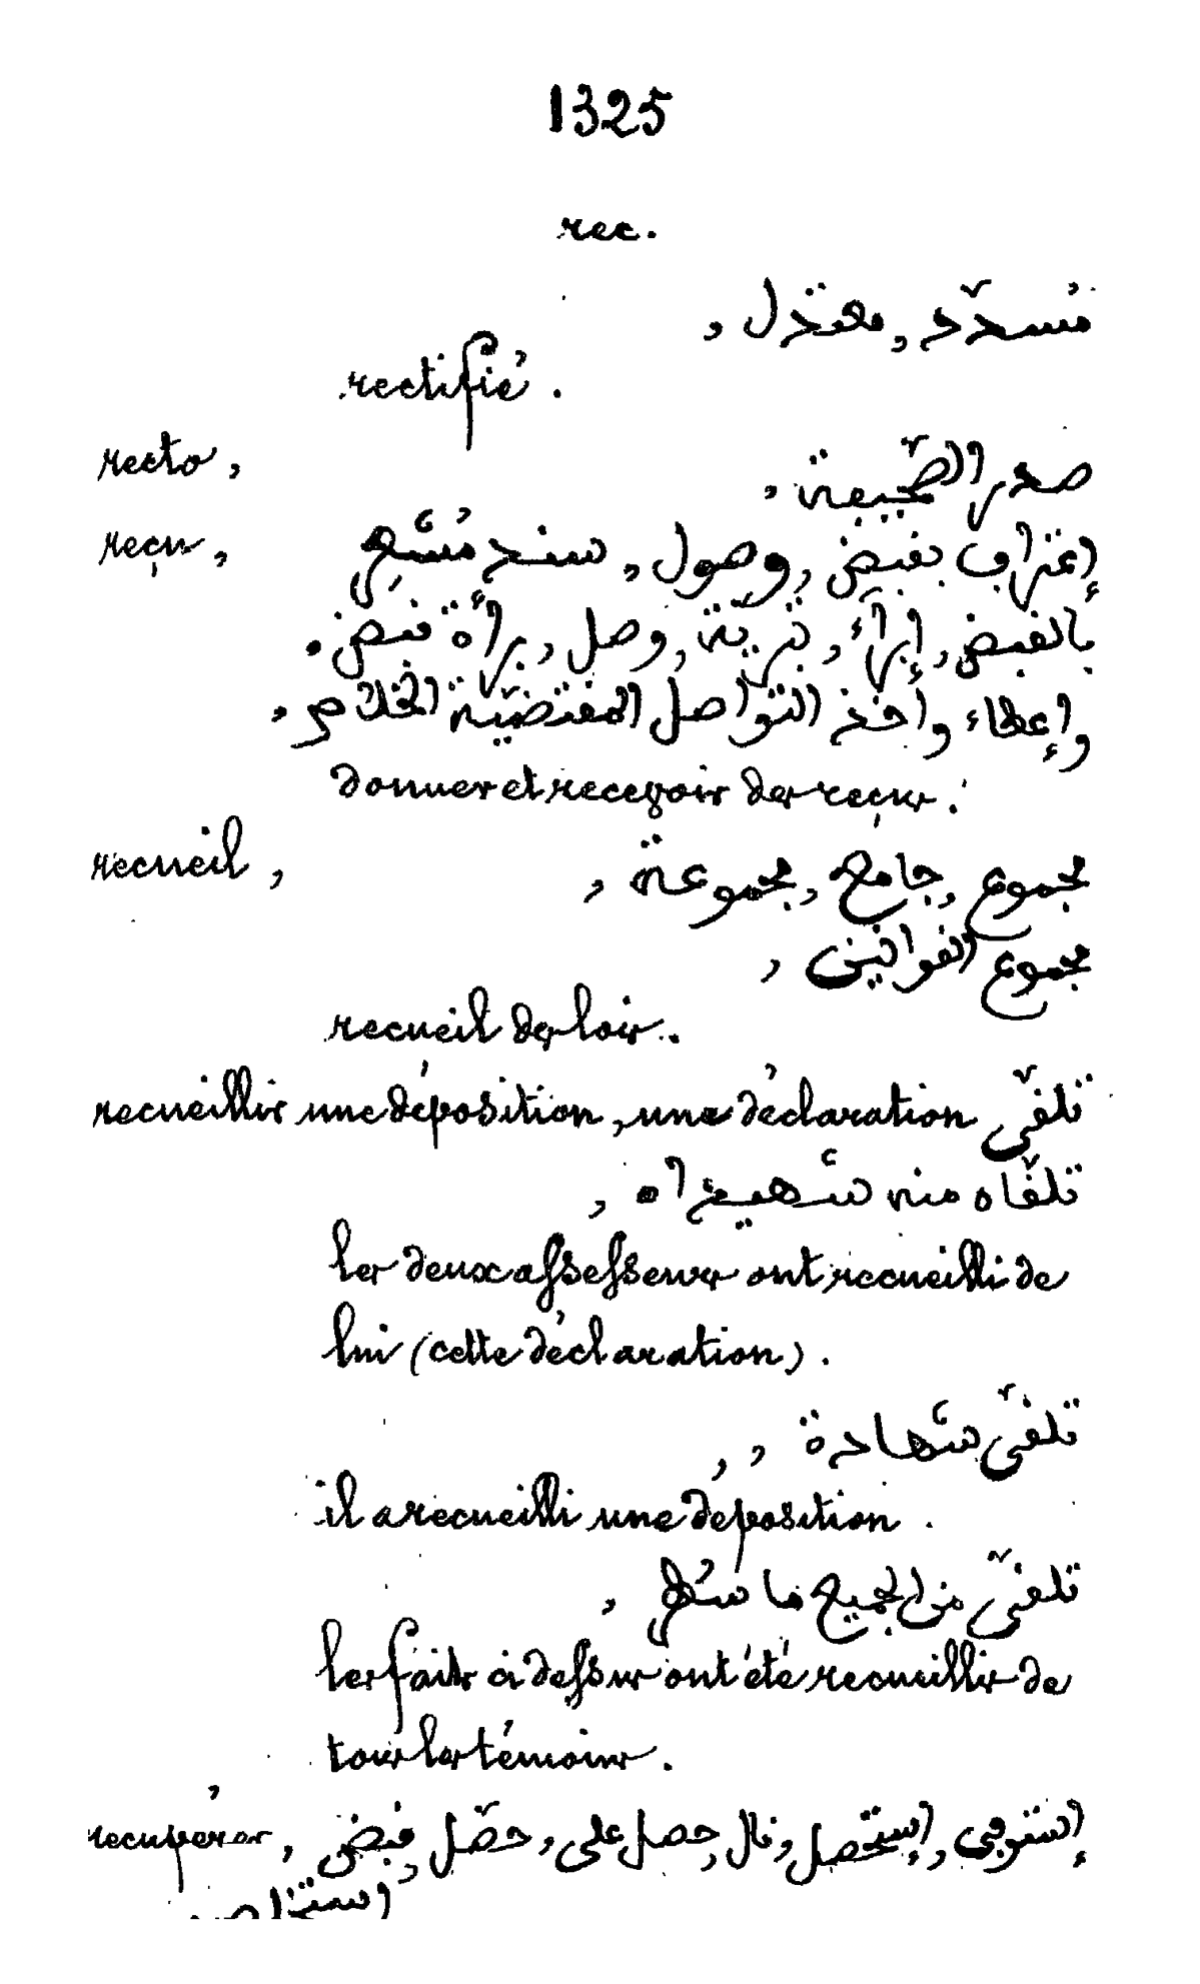 1325
rec.
مُسدَّد, معتدل,
rectifié.
recto, صدر الصَّحيفة,
reçu, إعتراف بقبض, وصول, سند مُشعِر
بالقبض, إبرآء, تبريّة, وصل, برأة قبض.
وإعطاء وأخذ التواصل المقتضيَّة الخلاص,
donner et recevoir des reçus.
recueil, مجموع, جامع, مجموعة,
مجموع القوانين,
recueil des lois.
recueillir une déposition, une déclaration تلقَّى
تلقَّاه منه شهيداه,
les deux assesseurs ont recueilli de
lui (cette déclaration).
تلقَّى شهادة,,
il a recueilli une déposition.
تلقَّى من الجميع ما سُطِر,
les faits ci dessus ont été recueillis de
tous les témoins.
récupérer, إستوفى, إستحصل, نال, حصل على, حصَّل, قبض,